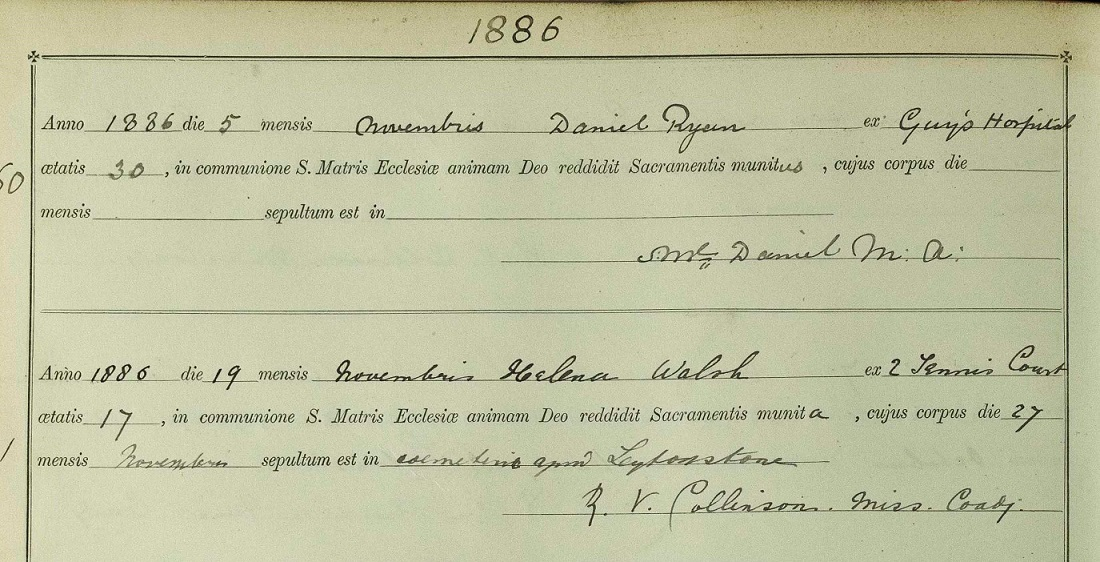 1886
Anno 1886 die 5 mensis Novembris Daniel Ryan ex Guy's Hospital
ætatis 30, in communione S. Matris Ecclesiæ animam Deo reddidit Sacramentis munitus, cujus corpus die
mensis sepultum est in
Daniel M: A:
Anno 1886 die 19 mensis Novembris Helena Walsh ex 2 Tennis Court
ætatis 17, in communione S. Matris Ecclesiæ animam Deo reddidit Sacramentis munita, cujus corpus die 27
mensis Novembris sepultum est in coemeterio apud Leytonstone
R. V. Collinson. Miss. Coadj.